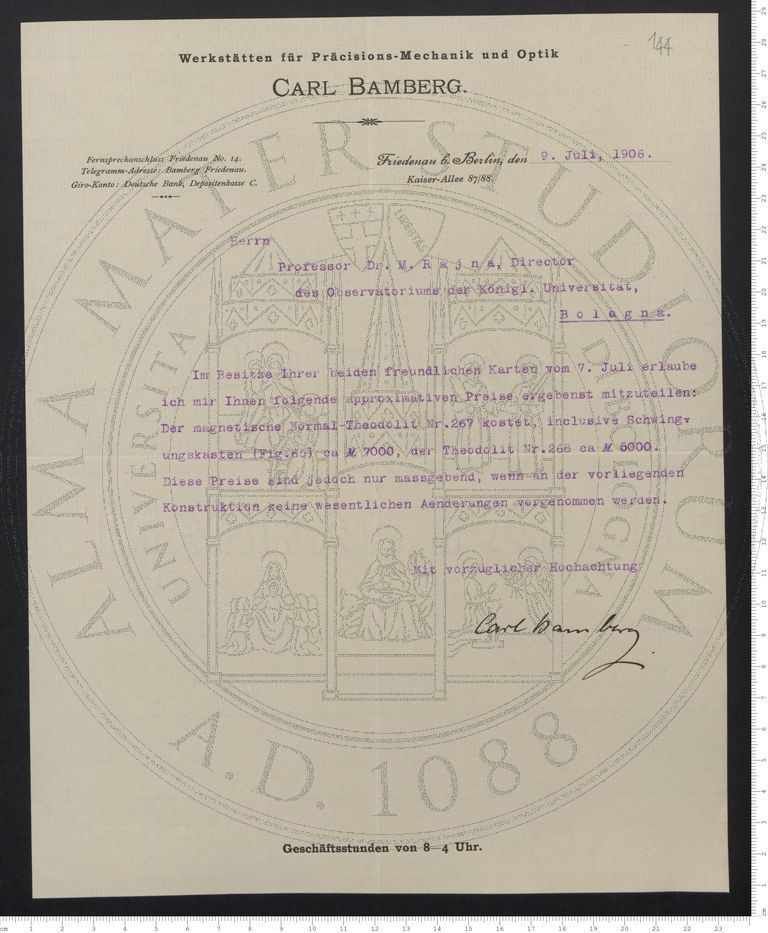 144
Werkstätten für Präcisions-Mechanik und Optik
CARL BAMBERG.
Fernsprechanschluss Friedenau No. 14.
Telegramm-Adresse: Bamberg Friedenau.
Giro-Konto: Deutsche Bank, Depositenkasse C.
Friedenau b. Berlin, den 9. Juli, 1906.
Kaiser-Allee 87/88.
Herrn
Professor Dr. M. Rajna, Director
des Observatoriums der Königl. Universität,
Bologna.
Im Besitze Ihrer beiden freundlichen Karten vom 7. Juli erlaube
ich mir Ihnen folgende approximativen Preise ergebenst mitzuteilen:
Der magnetische Normal-Theodolit Nr.267 kostet, inclusive Schwing-
ungskasten (Fig.65) ca M 7000, der Theodolit Nr.268 ca M 5000.
Diese Preise sind jedoch nur massgebend, wenn an der vorliegenden
Konstruktion keine wesentlichen Aenderungen vorgenommen werden.
Mit vorzüglicher Hochachtung
Carl Bamberg
Geschäftsstunden von 8-4 Uhr.
ALMA MATER STUDIORUM
A.D. 1088
UNIVERSITA DI BOLOGNA
LIBERTAS